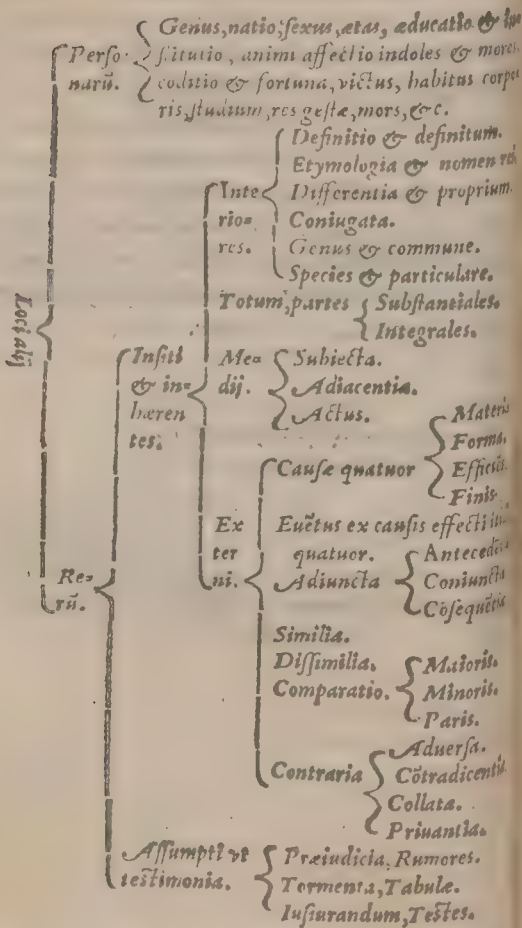 Loci alij
Perſo-
narũ.
Genus, natio, ſexus, ætas, æducatio & in
ſtitutio, animi affectio indoles & mores,
cõditio & fortuna, victus, habitus corpo
ris, ſtudium, res geſtæ, mors, &c.
Re-
rũ.
Inſiti
& in-
hæren
tes.
Inte
rio=
res.
Definitio & definitum.
Etymologia & nomen
Differentia & proprium.
Coniugata.
Genus & commune.
Species & particulare.
Totum, partes
Subſtantiales.
Integrales.
Me-
dij.
Subiecta.
Adiacentia.
Actus.
Ex
ter
ni.
Cauſæ quatuor
Materia
Forma.
Efficiẽs.
Finis.
Euẽtus ex cauſis effecti
quatuor.
Adiuncta
Antecedẽtia
Coniuncta
Cõſequẽtia
Similia.
Diſſimilia.
Comparatio.
Maioris.
Minoris.
Paris.
Contraria
Aduerſa.
Cõtradicentia.
Collata.
Priuantia.
Aſſumpti vt
teſtimonia.
Præiudicia, Rumores.
Tormenta, Tabulæ.
Iuſiurandum, Teſtes.